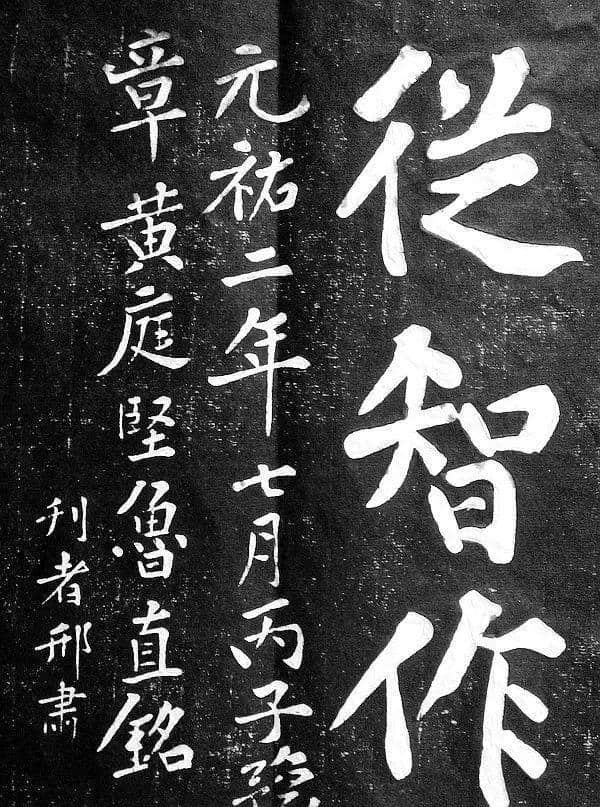 從智作
元祐二年七月丙子豫
章黃庭堅魯直銘
刋者邢肅